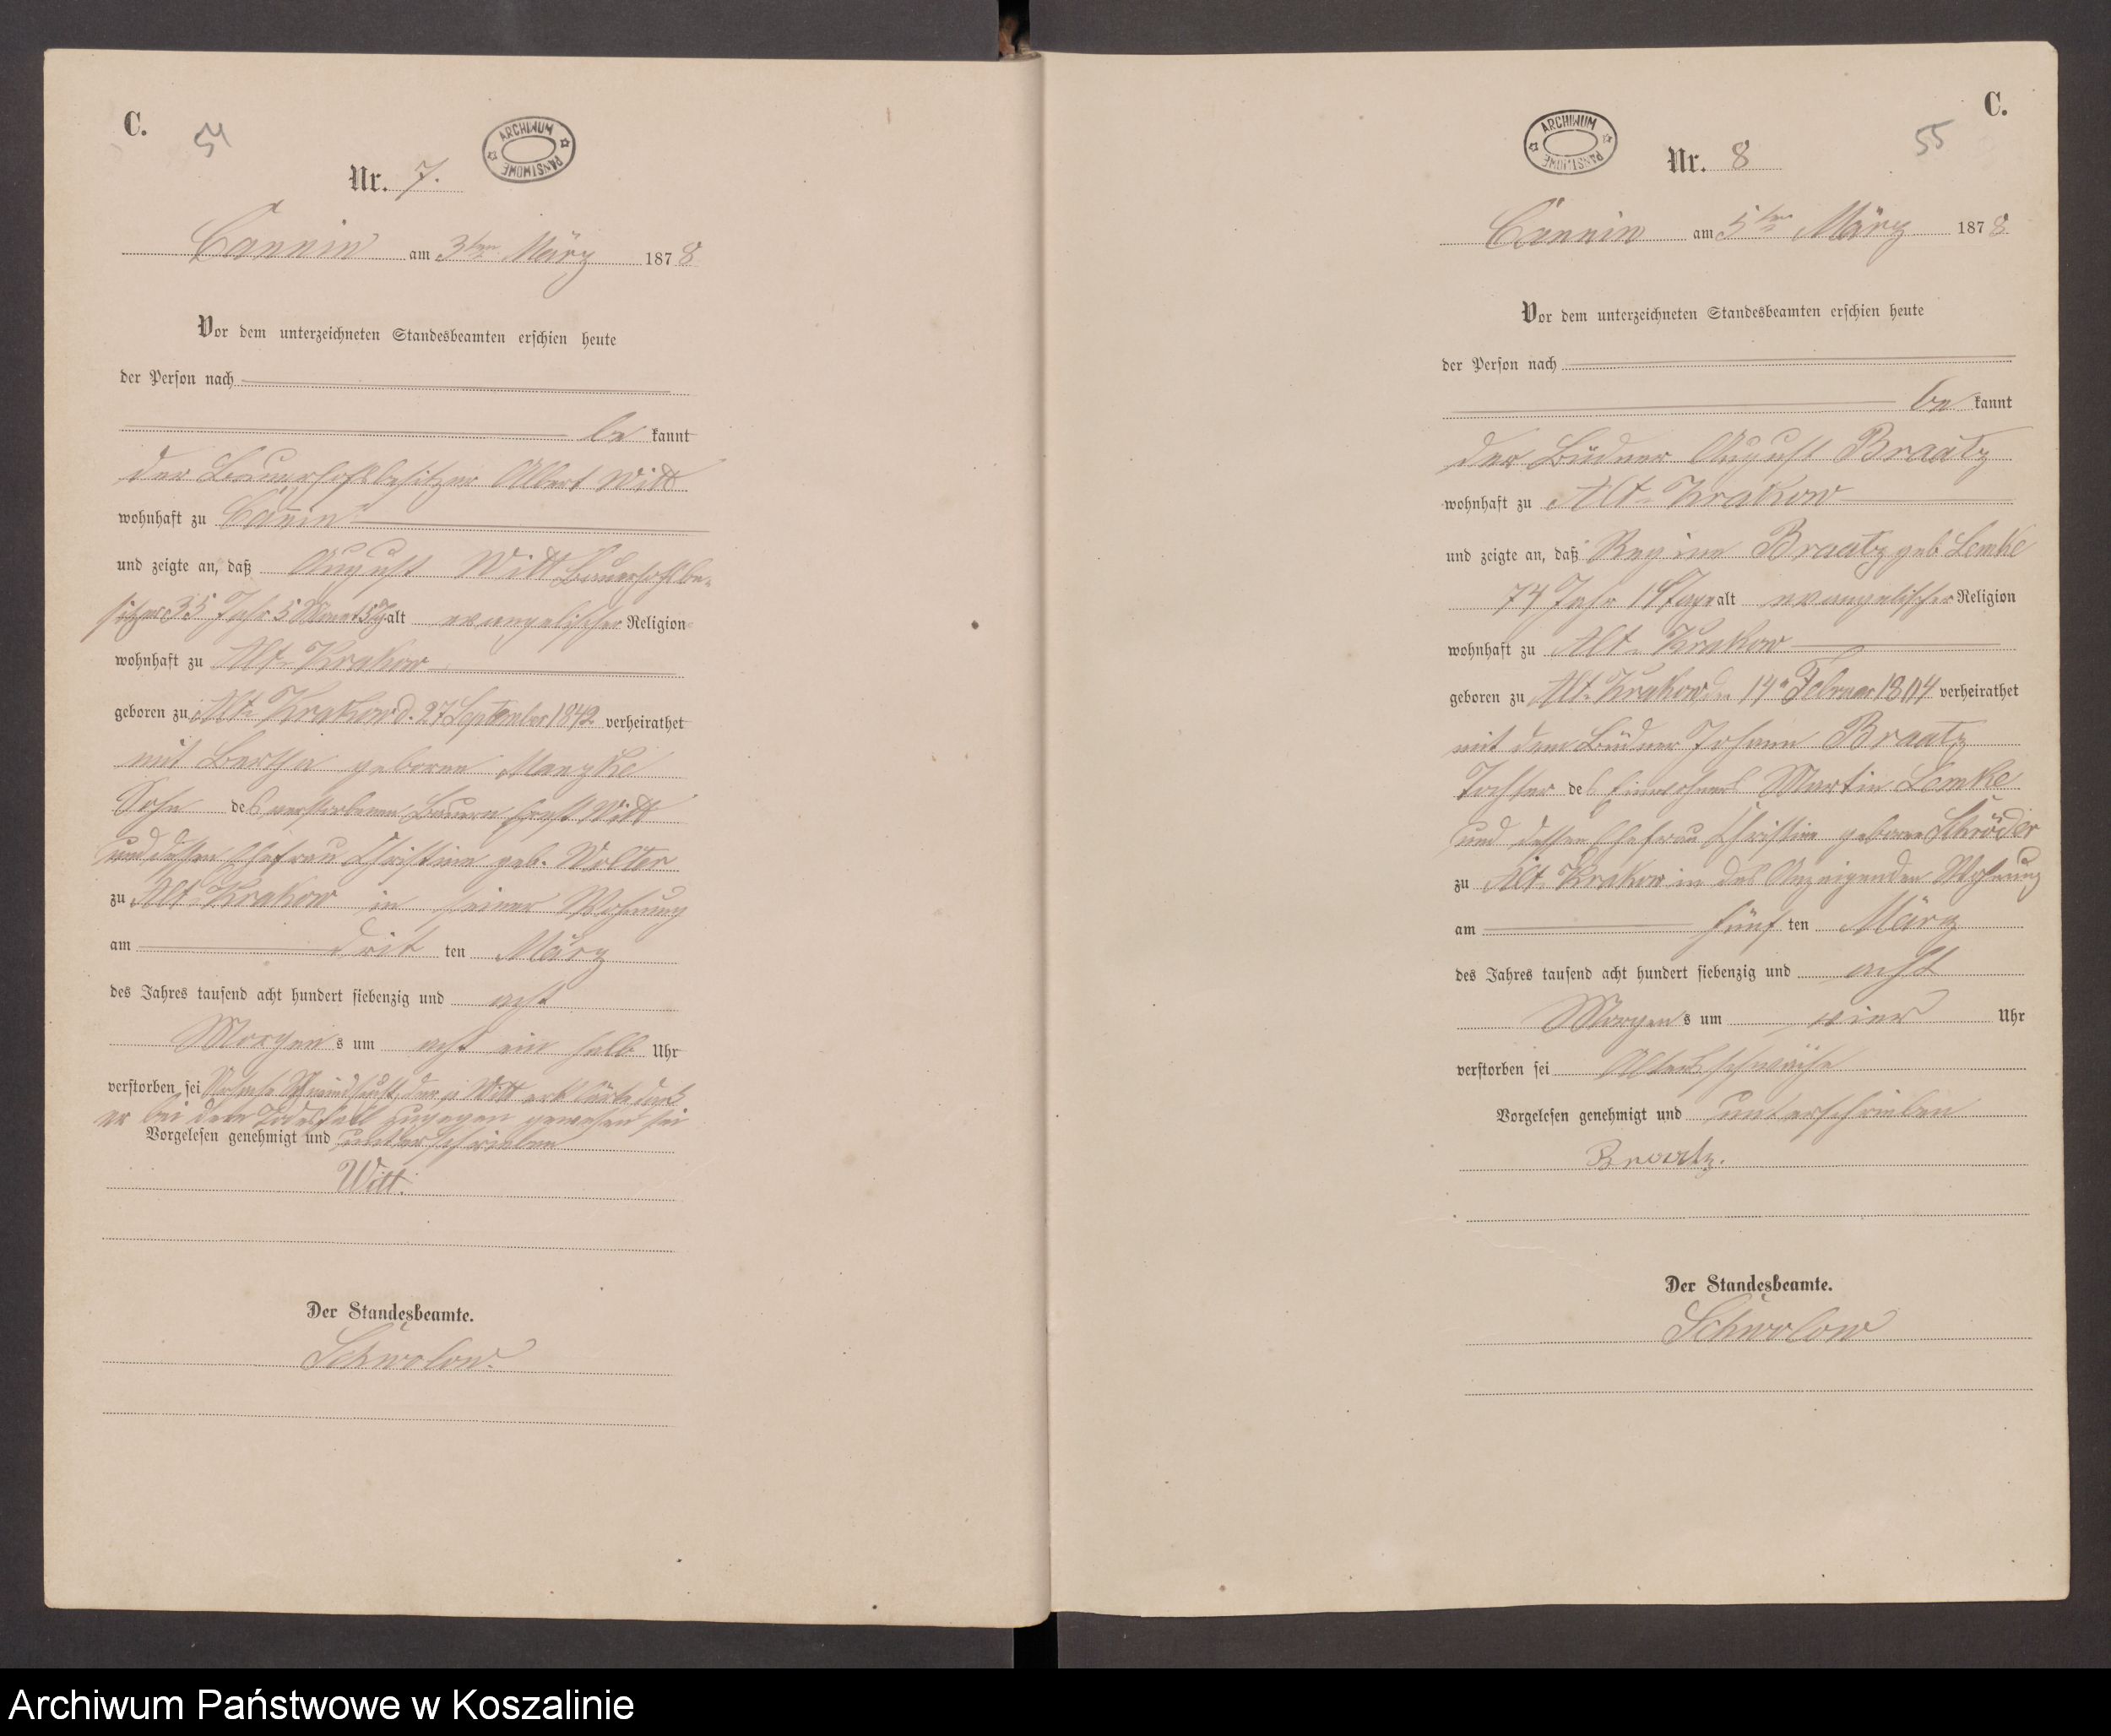 C.
54
ARCHIWUM PAŃSTWOWE
Nr. 7.
Cannin am 3ten März 1878
Vor dem unterzeichneten Standesbeamten erschien heute
der Person nach
be kannt
der Bauerhofsbesitzer Albert Witt
wohnhaft zu Cannin
und zeigte an, daß August Witt Bauerhofsbe-
sitzer 35 Jahr 5 Monat alt evangelischer Religion
wohnhaft zu Alt-Krakow
geboren zu Alt Krakow d. 27 September 1842 verheirathet
mit Bertha geborene Manzke
Sohn des verstorbenen Bauern Witt
und dessen Ehefrau Christine geb. Wolter
zu Alt Krakow in seiner Wohnung
am drit ten März
des Jahres tausend acht hundert siebenzig und acht
Morgen s um acht ein halb Uhr
verstorben sei der p Witt erklärte daß
er bei dem Todesfall zugegen gewesen sei
Vorgelesen genehmigt und unterschrieben
Witt.
Der Standesbeamte.
Schwolow.
C.
55
ARCHIWUM PAŃSTWOWE
Nr. 8
Cannin am 5ten März 1878
Vor dem unterzeichneten Standesbeamten erschien heute
der Person nach
be kannt
der Büdner August Braatz
wohnhaft zu Alt-Krakow
und zeigte an, daß Regine Braatz geb Lemke
74 Jahr 19 Tage alt evangelischer Religion
wohnhaft zu Alt-Krakow
geboren zu Alt-Krakow den 14n Februar 1804 verheirathet
mit dem Büdner Johann Braatz
Tochter des Einwohners Martin Lemke
und dessen Ehefrau Christine geborne Schröder
zu Alt Krakow in des Anzeigenden Wohnung
am fünf ten März
des Jahres tausend acht hundert siebenzig und acht
Morgen s um vier Uhr
verstorben sei Altersschwäche
Vorgelesen genehmigt und unterschrieben
Braatz.
Der Standesbeamte.
Schwolow
Archiwum Państwowe w Koszalinie